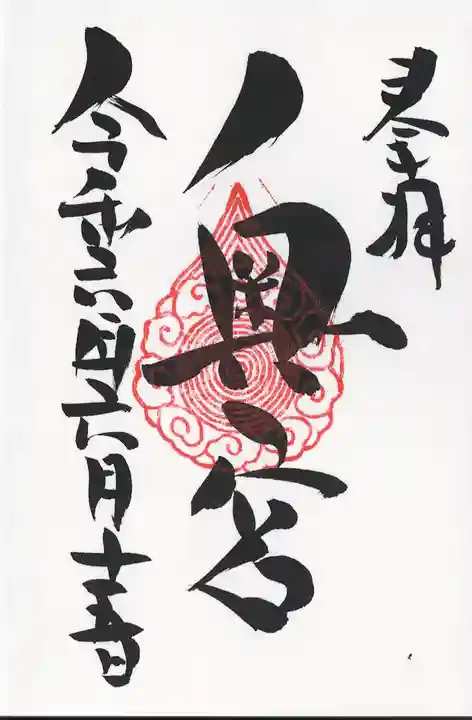 奉拝
八奥宮
令和六年六月十五日